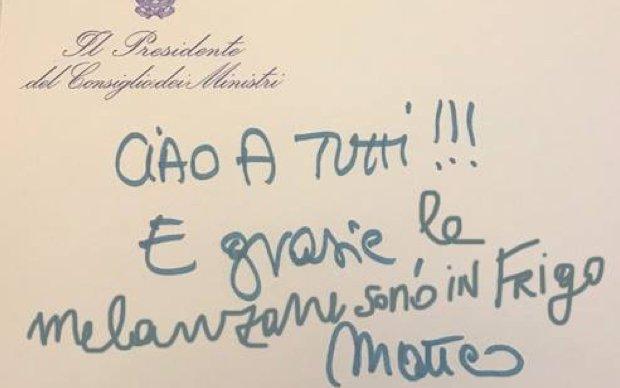 Il Presidente
del Consiglio dei Ministri
CIAO A TUTTI!!!
E grazie le
melanzane sono in FRIGO
Matteo